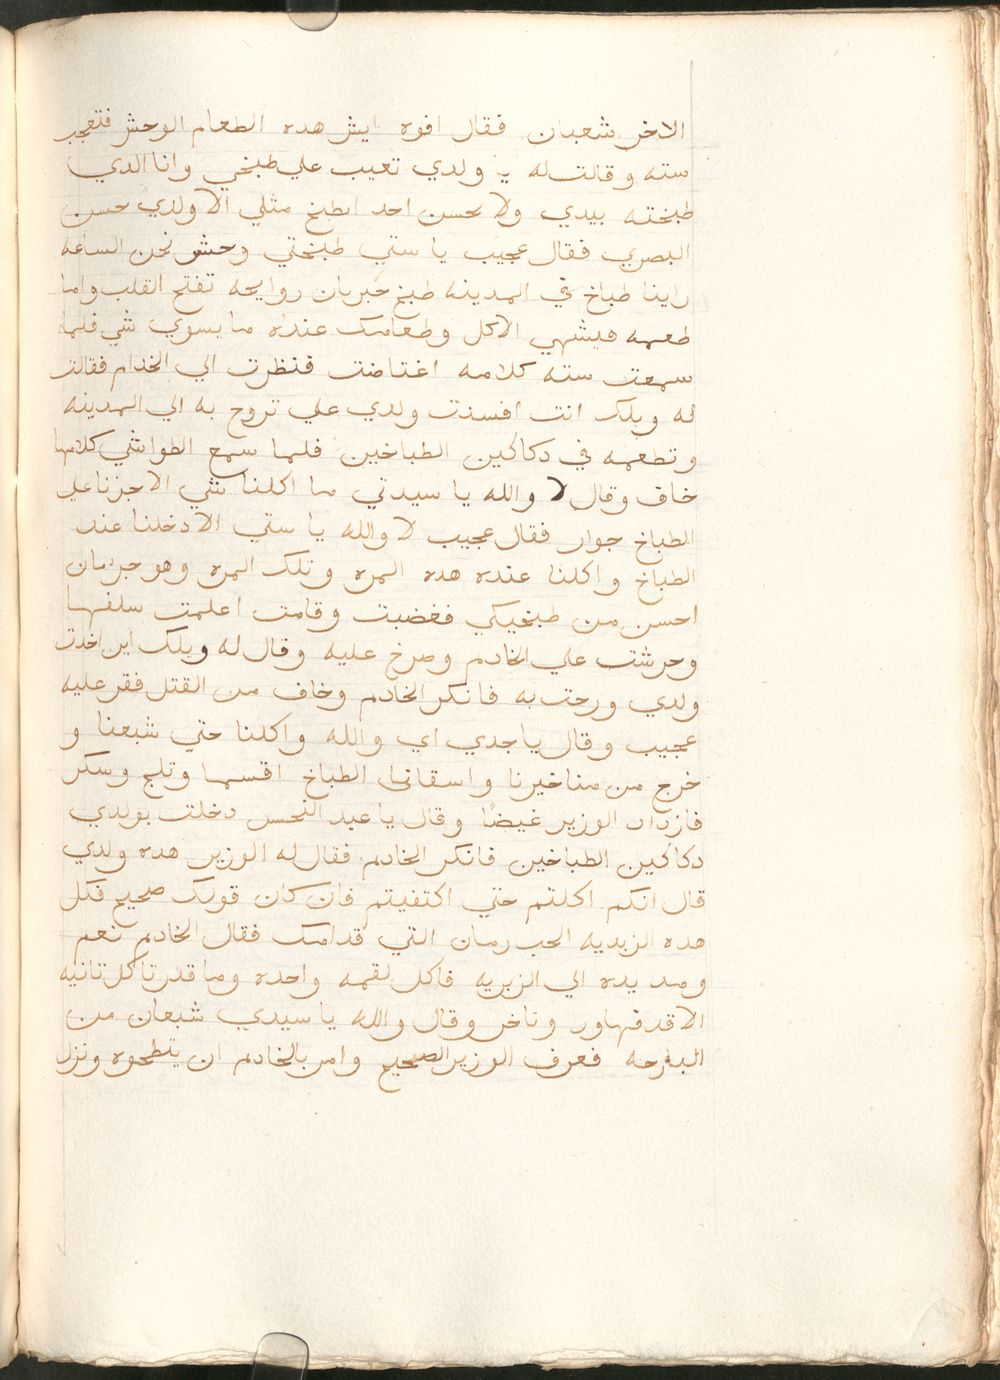 الاخر شعبان فقال افوه ايش هده الطعام الوحش فتعجب
سته وقالت له يا ولدي تعيب علي طبخي وانا الدي
طبخته بيدي ولا يحسن احد ايطبخ مثلي الا ولدي حسن
البصري فقال عجيب يا ستي طبختي وحش نحن الساعه
راينا طباخ في المدينه طبخ حبرمان روايحه تفتح القلب واما
طعمه فيشهي الاكل وطعامك عنده ما يسوي شي فلما
سمعت سته كلامه اغتاضت فنظرت الي الخدام فقالت
له ويلك انت افسدت ولدي علي تروح به الي المدينه
وتطعمه في دكاكين الطباخين فلما سمع الطواشي كلامها
خاف وقال لا والله يا سيدتي ما اكلنا شي الا جزنا علي
الطباخ جواز فقال عجيب لا والله يا ستي الا دخلنا عند
الطباخ واكلنا عنده هده المره وتلك المره وهو حبرمان
احسن من طبخيكي فغضبت وقامت اعلمت سلفها
وحرشت علي الخادم وصرخ عليه وقال له ويلك اين اخدت
ولدي ورحت به فانكر الخادم وخاف من القتل فقر عليه
عجيب وقال يا جدي اي والله واكلنا حتي شبعنا و
خرج من مناخيرنا واسقانا الطباخ اقسما وتلج وسكر
فازداد الوزير غيضًا وقال يا عبد النحس دخلت بولدي
دكاكين الطباخين فانكر الخادم فقال له الوزير هده ولدي
قال انكم اكلتم حتي اكتفيتم فان كان قولك صحيح فكل
هده الزبديه الحب رمان التي قدامك فقال الخادم نعم
ومد يده الي الزبديه فاكل لقمه واحده وما قدر تاكل تانيه
الا قدفها وتاخر وقال والله يا سيدي شبعان من
البارحه فعرف الوزير الصحيح وامر بالخادم ان يتطحوه ونزل